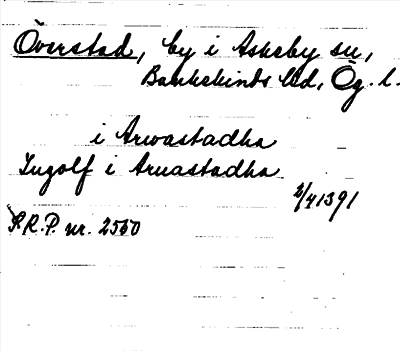 Överstad, by i Askeby sn,
Bankekinds hd, Ög. l.
i Arwastadha
Ingolf i Aruastadha
2/4 1391
S.R.P. nr. 2550